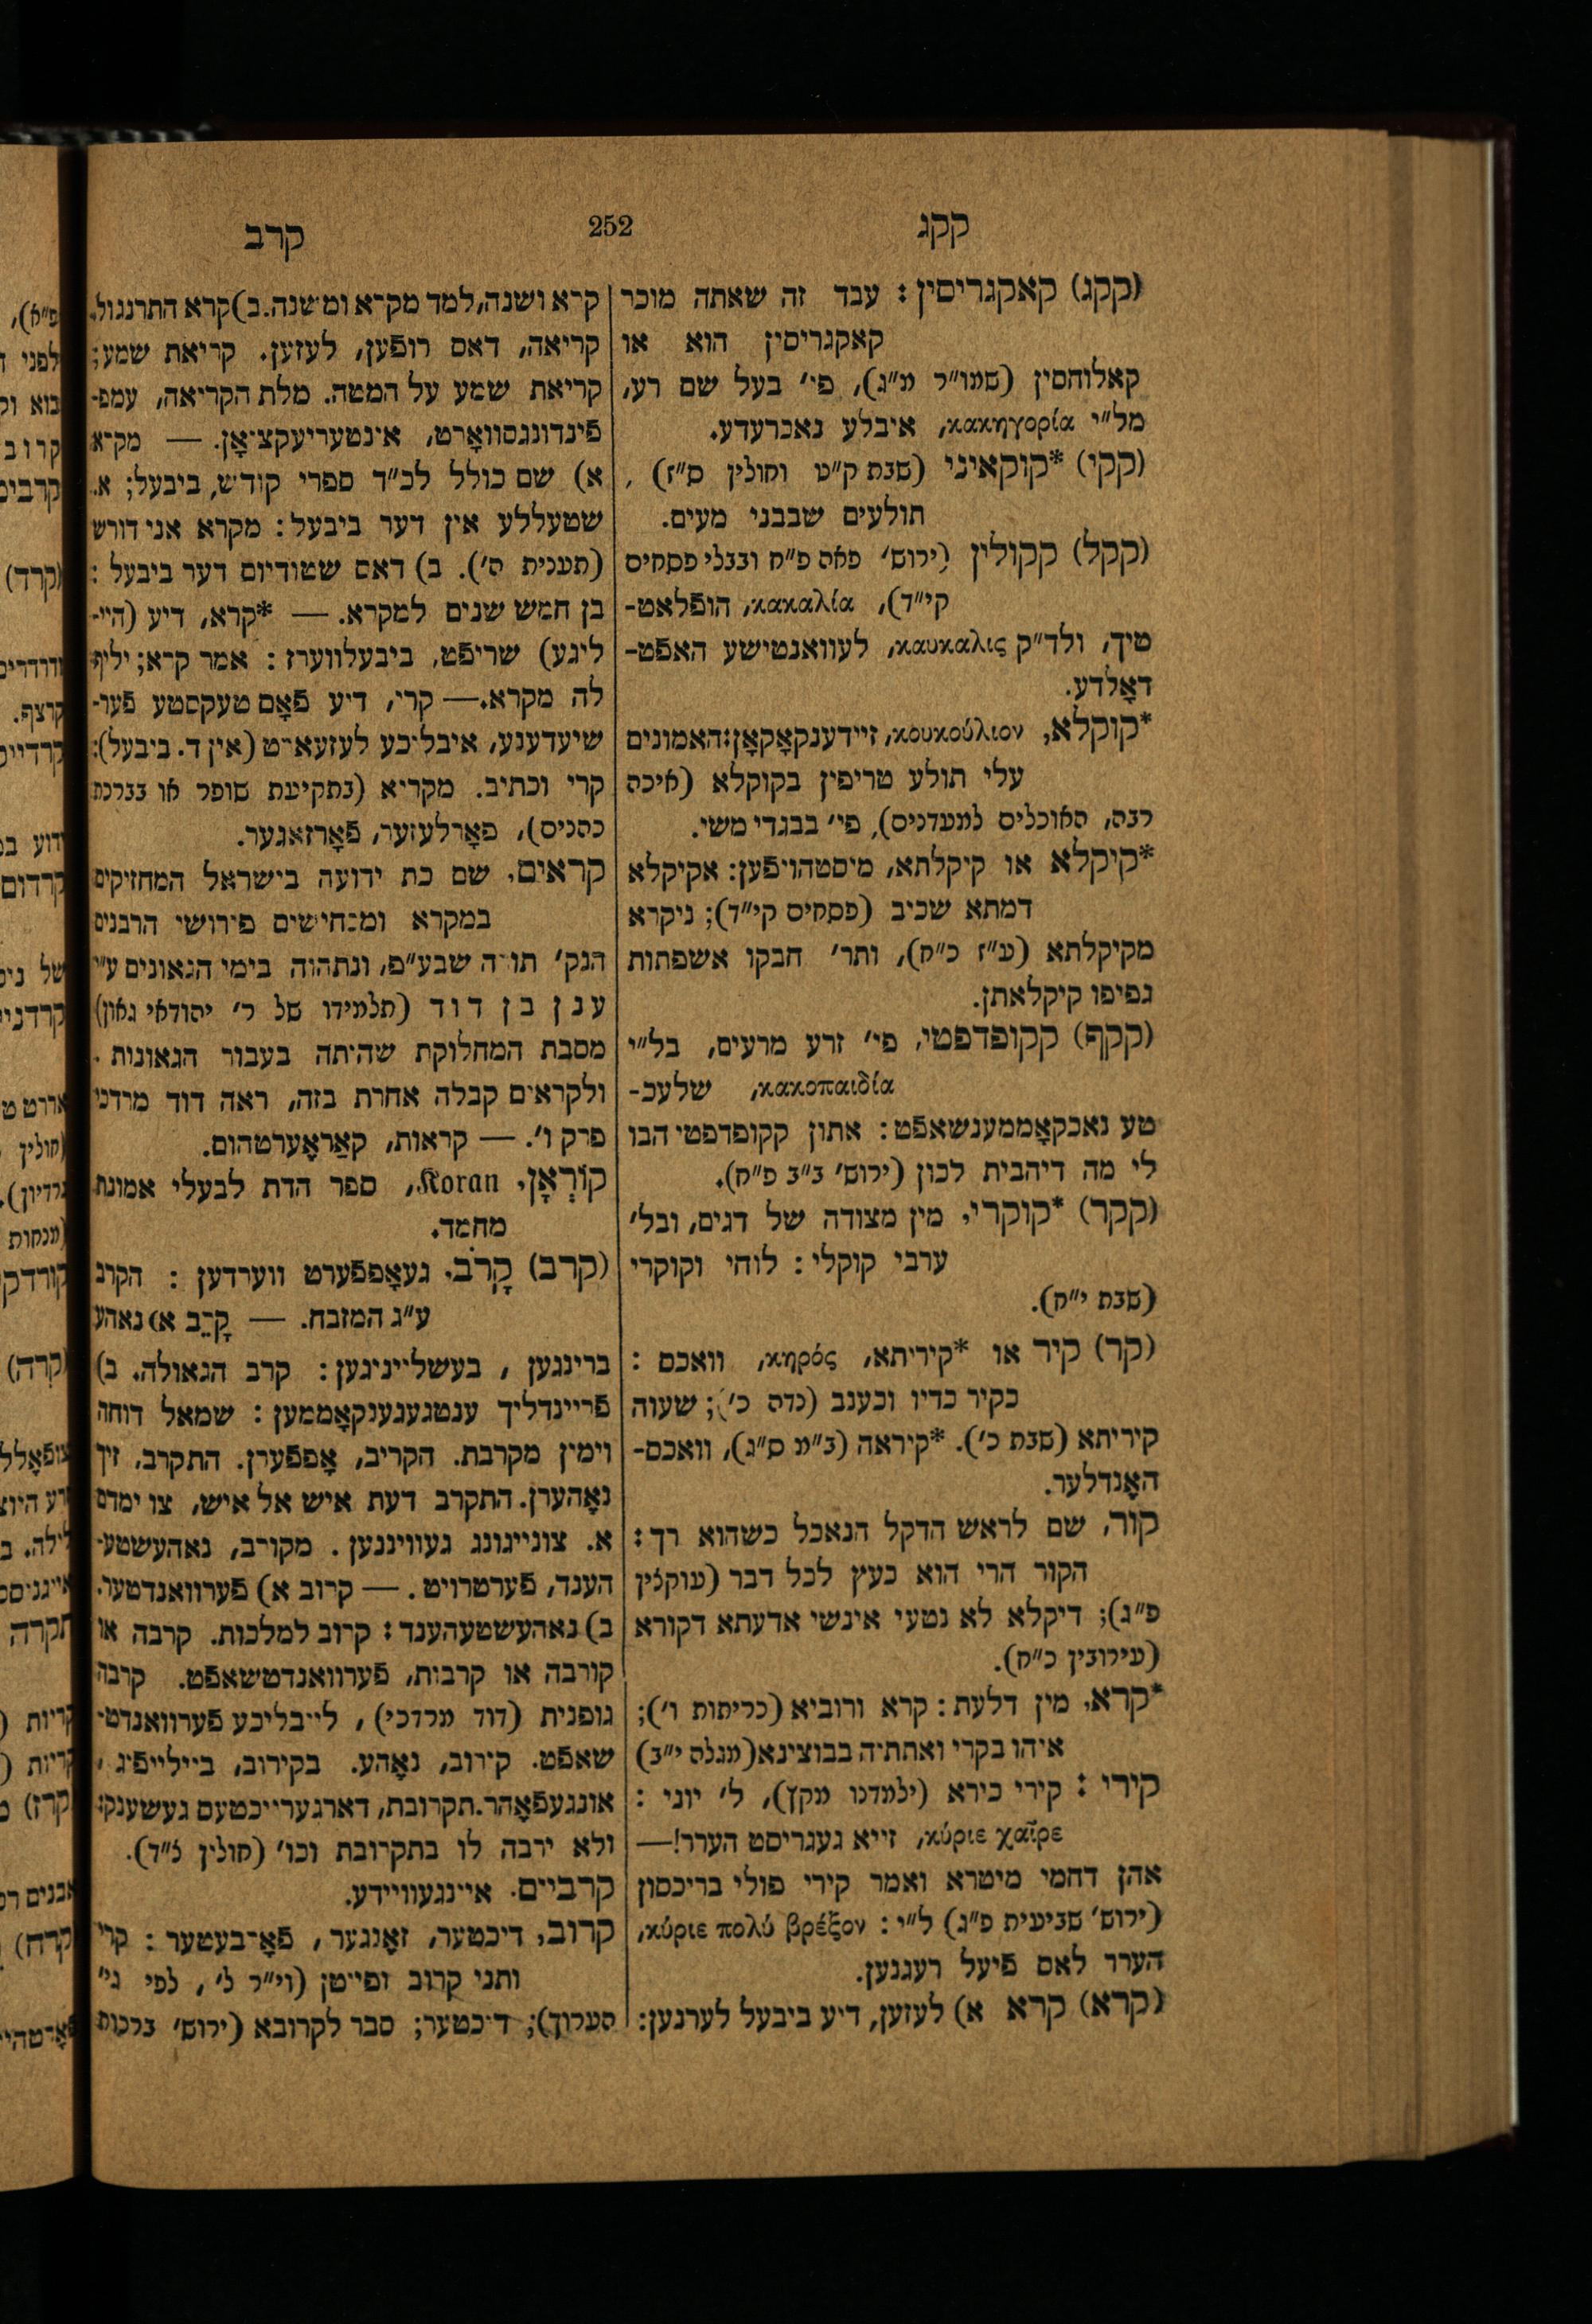 קקג
252
קרב
(קקג) קאקגריסין: עבד זה שאתה מוכר
קאקגריסין הוא או
קאלוהסין (שמו״ר מ״ג), פי׳ בעל שם רע,
מל״י κακηγορία, איבלע נאכרעדע.
(קקי) *קוקאיני (שבת ק״ט וחולין ס״ז),
תולעים שבבני מעים.
(קקל) קקולין (ירוש׳ פאה פ״ח ובבלי פסחים
קי״ד), κακαλία, הופלאט-
טיך, ולד״ק καυκαλις, לעוואנטישע האפט-
דאָלדע.
*קוקלא, κουκούλιον, זיידענקאָקאָן: האמונים
עלי תולע טריפין בקוקלא (איכה
רבה, האוכלים למעדנים), פי׳ בבגדי משי.
*קיקלא או קיקלתא, מיסטהויפען: אקיקלא
דמתא שכיב (פסחים קי״ד); ניקרא
מקיקלתא (ע״ז כ״ח), ותר׳ חבקו אשפתות
גפיפו קיקלאתן.
(קקף) קקופדפטי, פי׳ זרע מרעים, בל״י
κακοπαιδία, שלעכ-
טע נאכקאָממענשאפט: אתון קקופדפטי הבו
לי מה דיהבית לכון (ירוש׳ ב״ב פ״ח).
(קקר) *קוקרי, מין מצודה של דגים, ובל׳
ערבי קוקלי: לוהי וקוקרי
(שבת י״ח).
(קר) קיר או *קיריתא, κηρός, וואכס:
כקיר כדיו וכענב (נדה כ׳); שעוה
קיריתא (שבת כ׳). *קיראה (ב״מ ס״ג), וואכס-
האָנדלער.
קור, שם לראש הדקל הנאכל כשהוא רך:
הקור הרי הוא כעץ לכל דבר (עוקצין
פ״ג); דיקלא לא נטעי אינשי אדעתא דקורא
(עירובין כ״ח).
*קרא, מין דלעת: קרא ורוביא (כריתות ו׳);
איהו בקרי ואתתיה בבוצינא (מגלה י״ב)
קירי: קירי כירא (ילמדנו מקץ), ל׳ יוני:
κύριε χαῖρε, זייא געגריסט הערר!—
אהן דחמי מיטרא ואמר קירי פולי בריכסון
(ירוש׳ שביעית פ״ג) ל״י: κύριε πολύ βρέξον,
הערר לאס פיעל רעגנען.
(קרא) קרא א) לעזען, דיע ביבעל לערנען:
קרא ושנה, למד מקרא ומשנה. ב) קרא התרנגול.
קריאה, דאס רופען, לעזען. קריאת שמע;
קריאת שמע על המטה. מלת הקריאה, עמפ-
פינדונגסוואָרט, אינטעריעקציאָן. — מקרא
א) שם כולל לכ״ד ספרי קודש, ביבעל; א.
שטעללע אין דער ביבעל: מקרא אני דורש
(תענית ה׳). ב) דאס שטודיום דער ביבעל:
בן חמש שנים למקרא. — *קרא, דיע (היי-
ליגע) שריפט, ביבעלווערז: אמר קרא; יליף
לה מקרא. — קרי, דיע פאָם טעקסטע פער-
שיעדענע, איבליכע לעזעארט (אין ד. ביבעל):
קרי וכתיב. מקריא (בתקיעת שופר או בברכת
כהנים), פאָרלעזער, פאָרזאגער.
קראים, שם כת ידועה בישראל המחזיקים
במקרא ומכחישים פירושי הרבנים
הנק׳ תורה שבע״פ, ונתהוה בימי הגאונים ע״י
ענן בן דוד (תלמידו של ר׳ יהודאי גאון)
מסבת המחלוקת שהיתה בעבור הגאונות.
ולקראים קבלה אחרת בזה, ראה דוד מרדכי
פרק ו׳. — קראות, קאַראָערטהום.
קוֹרְאָן, Koran, ספר הדת לבעלי אמונת
מחמד.
(קרב) קָרֹב, געאָפפערט ווערדען: הקרב
ע״ג המזבח. — קָרֵב א) נאהע
ברינגען, בעשלייניגען: קרב הגאולה. ב)
פריינדליך ענטגעגענקאָממען: שמאל דוחה
וימין מקרבת. הקריב, אָפפערן. התקרב, זיך
נאָהערן. התקרב דעת איש אל איש, צו ימדם
א. צונייגונג געווינגען. מקורב, נאהעשטע-
הענד, פערטרויט. — קרוב א) פערוואנדטער,
ב) נאהעשטעהענד: קרוב למלכות. קרבה או
קורבה או קרבות, פערוואנדטשאפט. קרבה
גופנית (דוד מרדכי), לייבליכע פערוואנדט-
שאפט. קירוב, נאָהע. בקירוב, בייליײפיג,
אונגעפאָהר. תקרובת, דארגערייכטעס געשענק:
ולא ירבה לו בתקרובת וכו׳ (חולין צ״ד).
קרביים, איינגעוויידע.
קרוב, דיכטער, זאָנגער, פאָרבעטער: קרי
ותני קרוב ופייטן (וי״ר ל׳, לפי גי׳
הערוך); דיכטער; סבר לקרובא (ירוש׳ ברכות